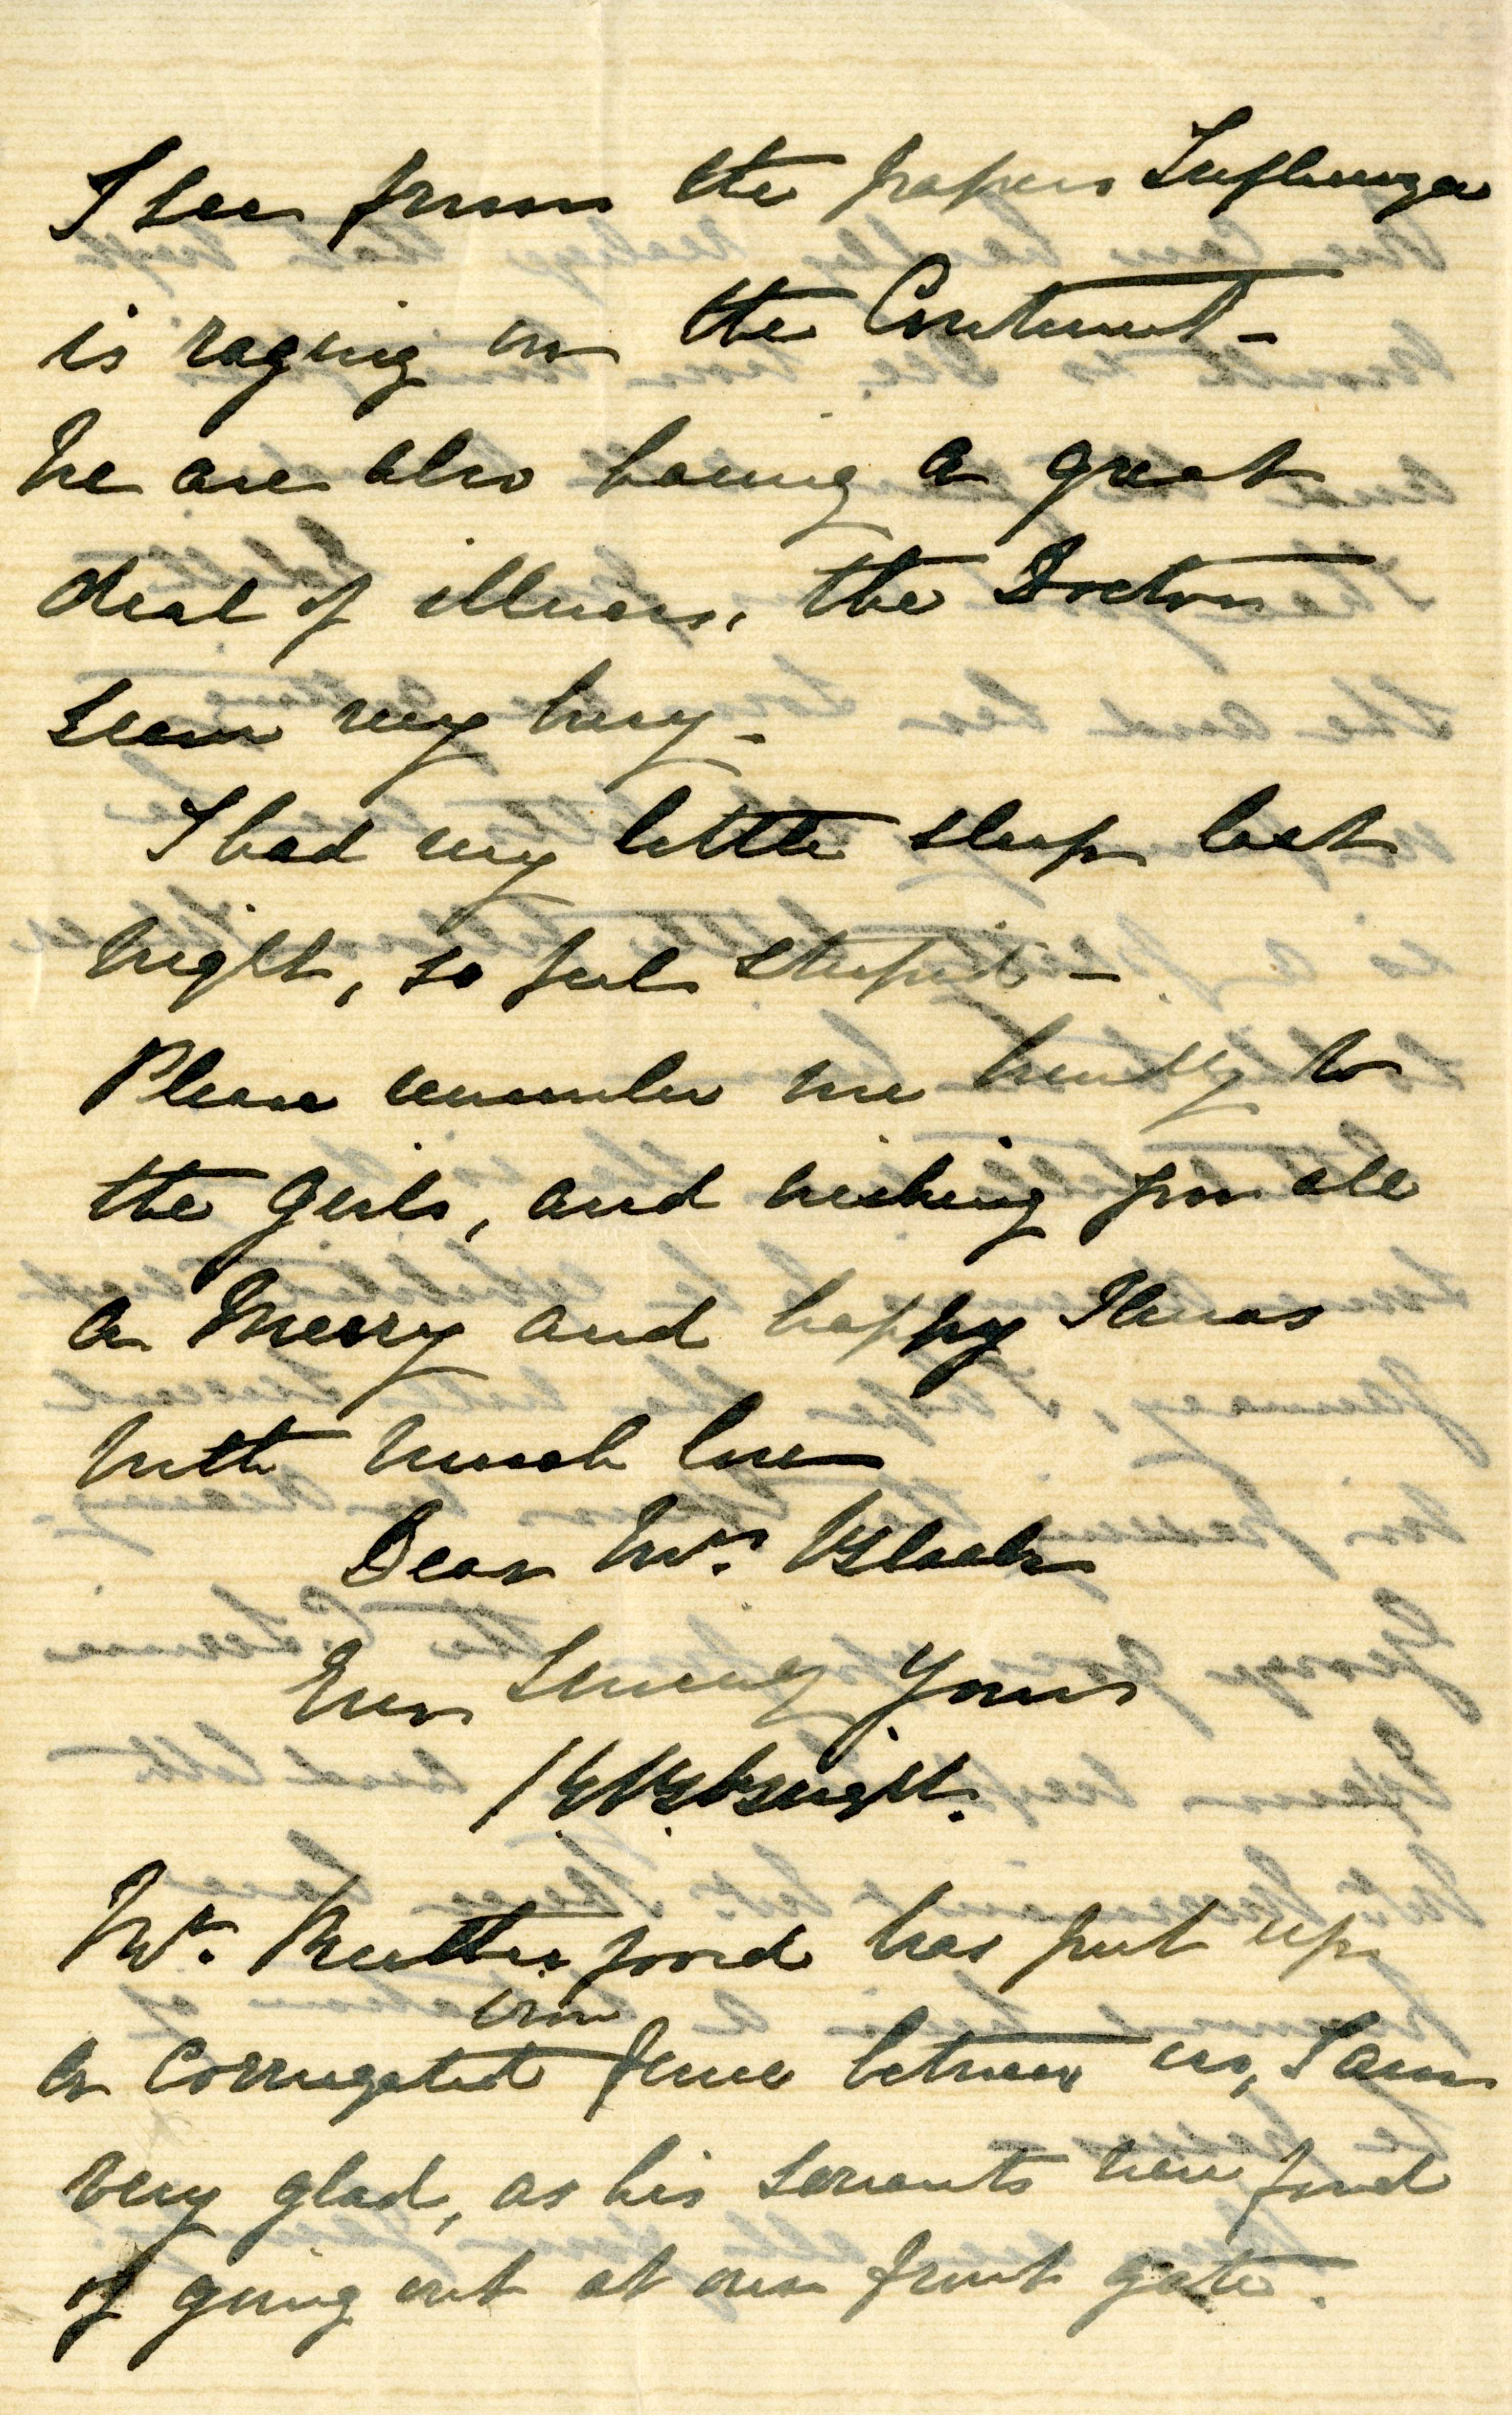 I see from the papers Influenza
is raging on the Continent -
We are also having a great
deal of illness, the Doctors
seem very busy -
I had very little sleep last
night, so feel stupid -
Please remember me kindly to
the girls, and wishing you all
a Merry and happy Xmas
With much love
Dear Mrs. Black
Ever Sincerely Yours
Mr. Rutherford has put up
iron
a corrugated fence between us, I am
very glad, as his servants were fond
of going out at our front gate.